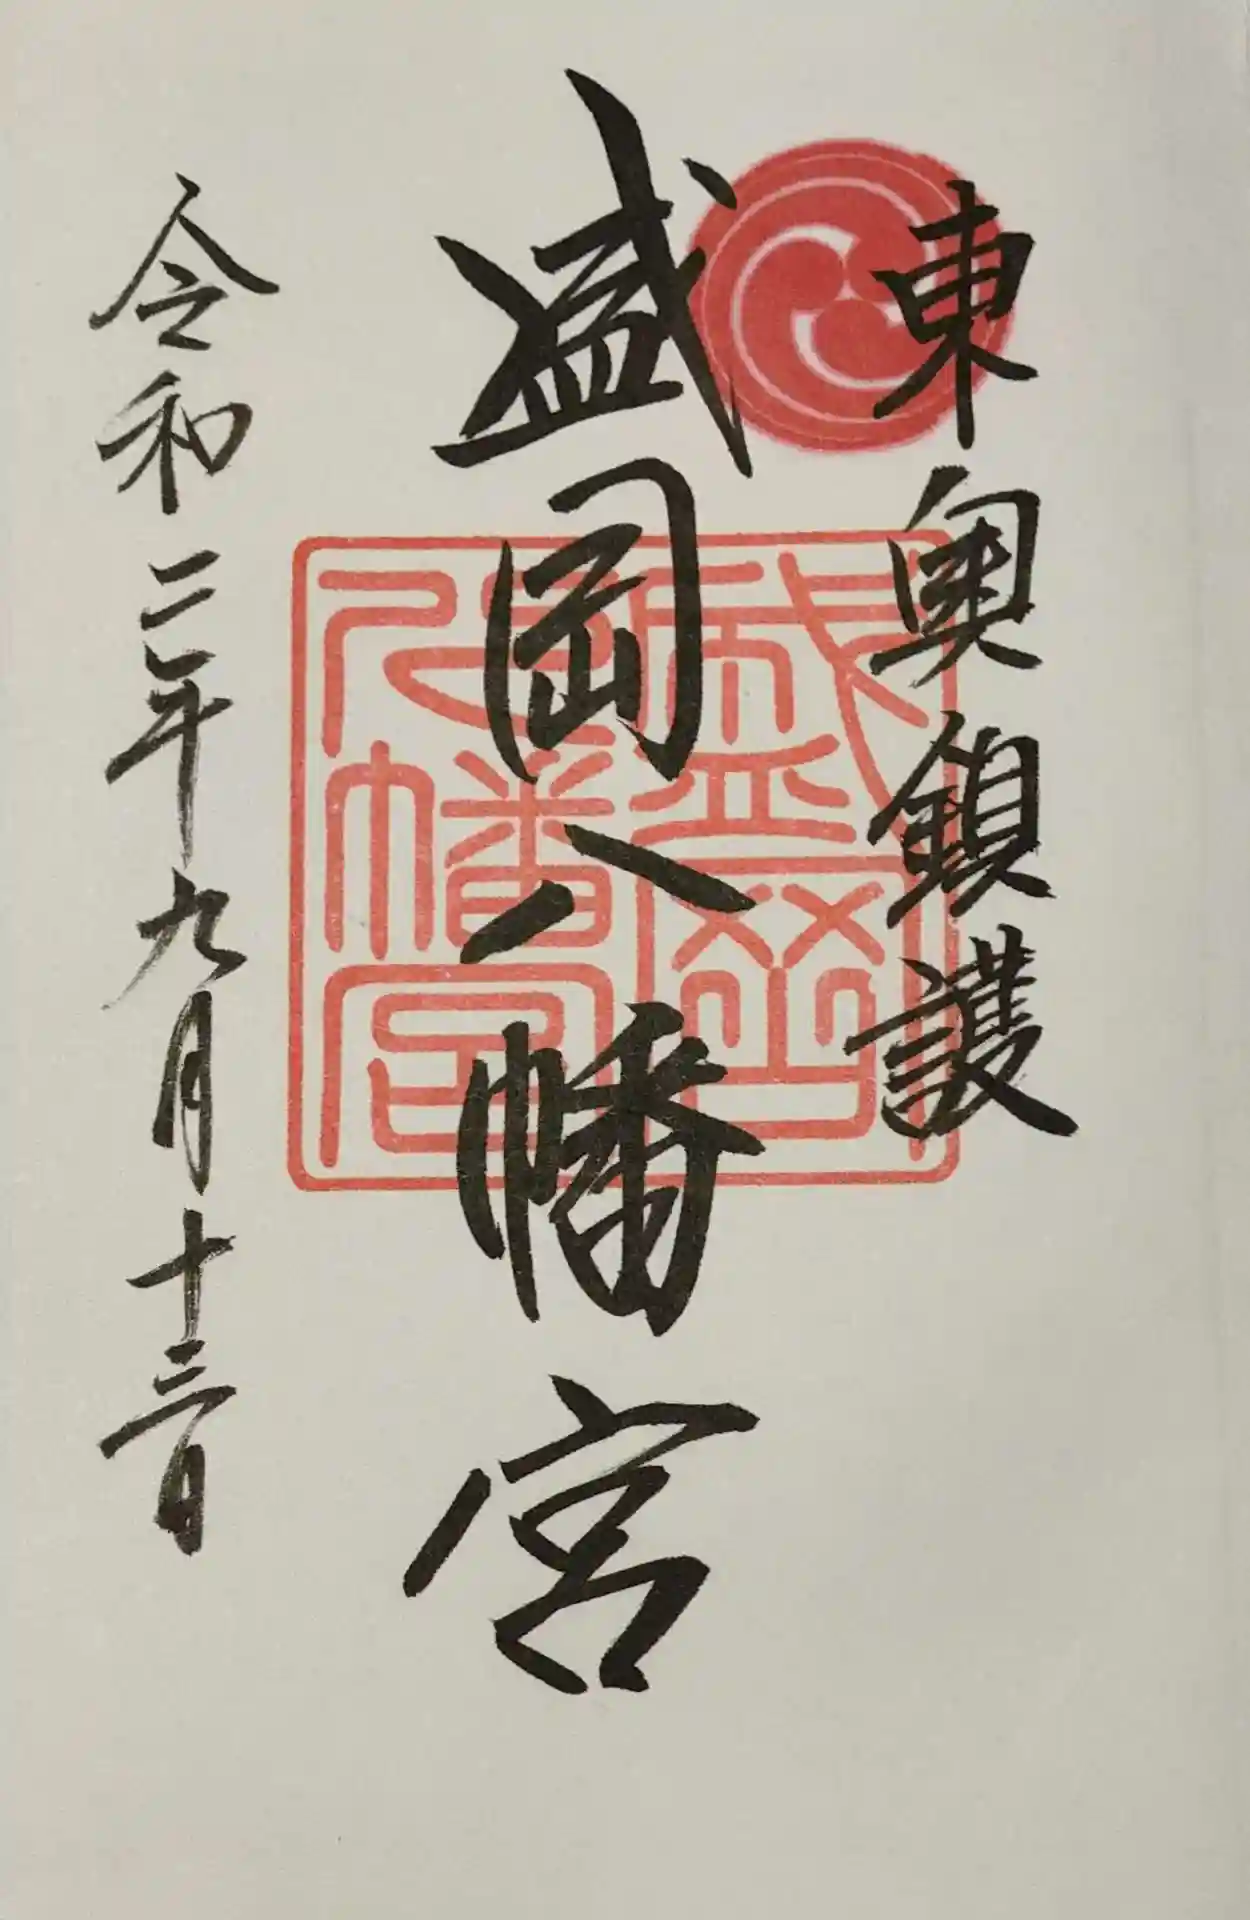 東奥鎮護
盛岡八幡宮
盛岡八幡宮
令和二年九月十三日